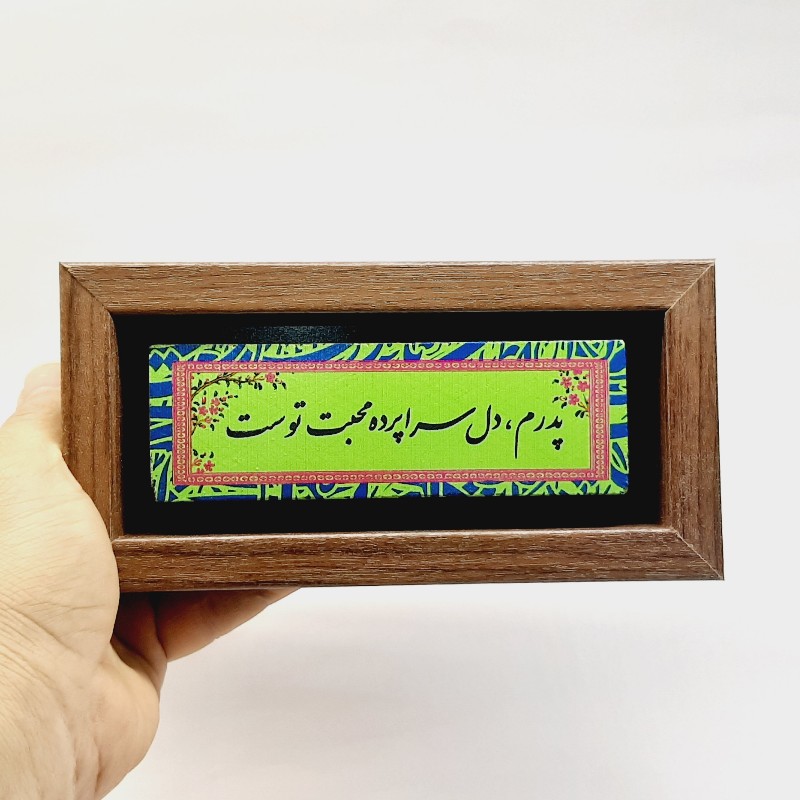 پدرم، دل سراپرده محبت توست